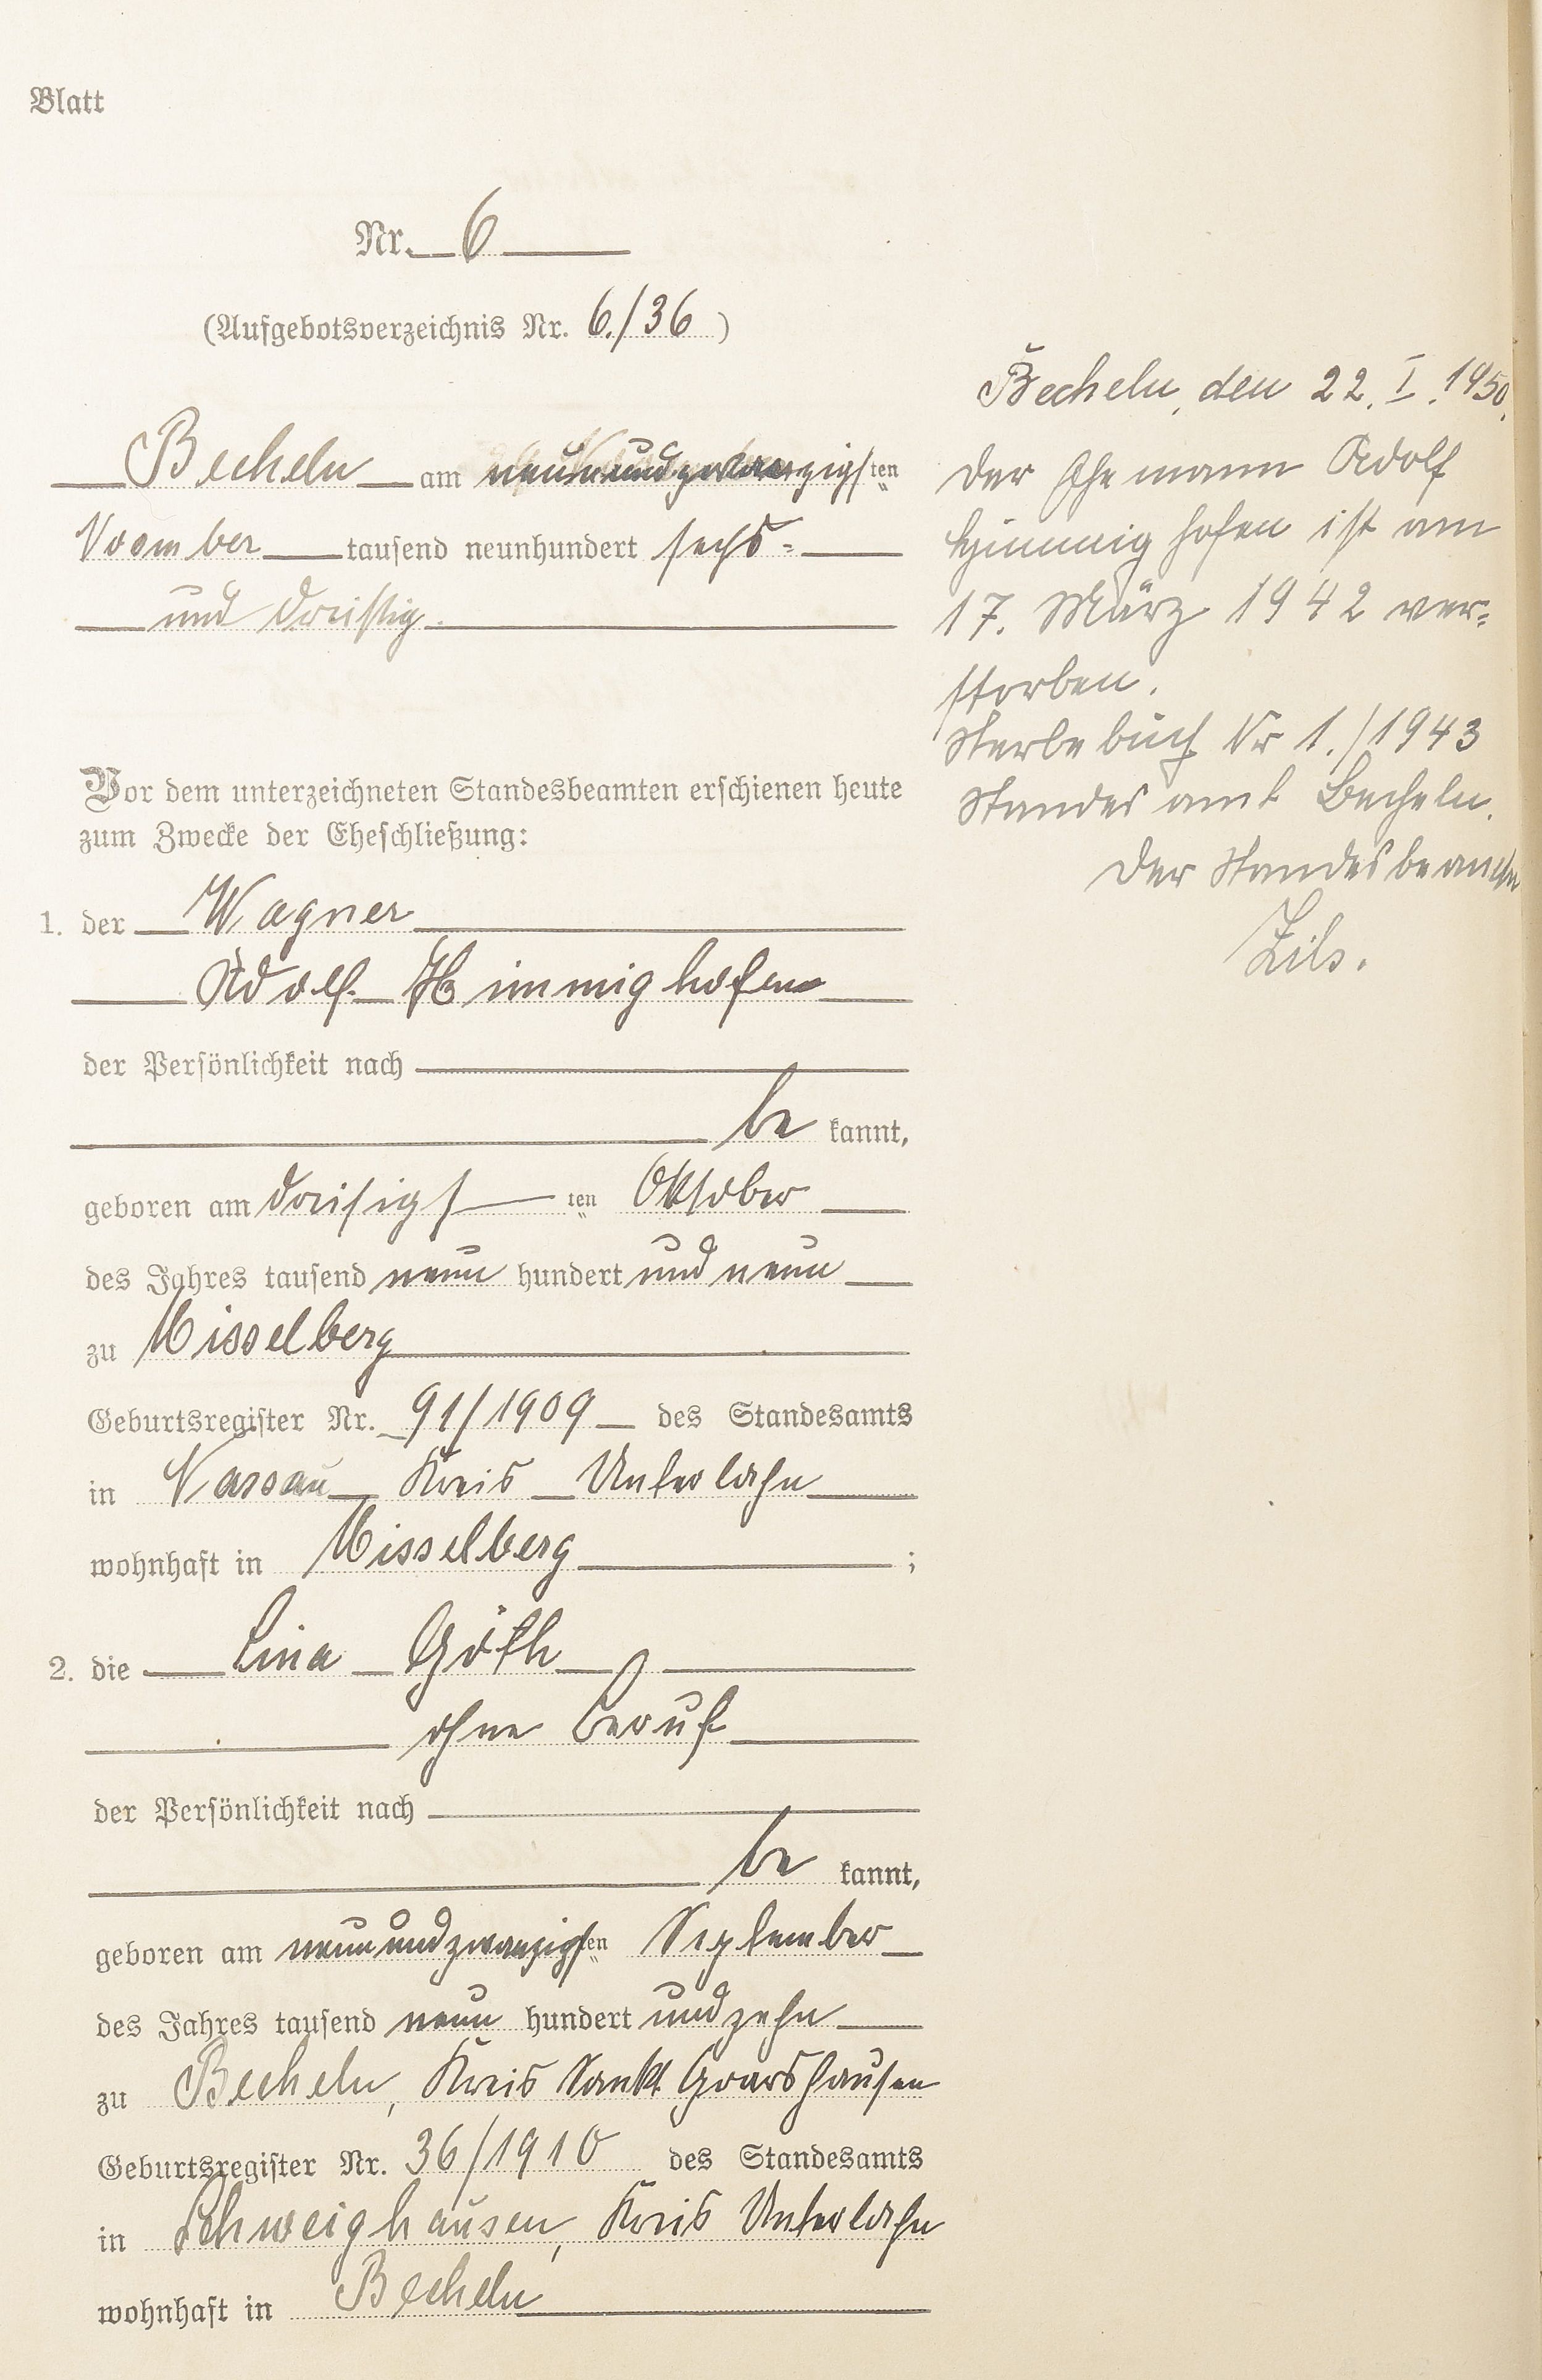 Blatt
Nr. 6
(Aufgebotsverzeichnis Nr. 6./36)
Becheln am neunundzwanzigsten
Voomber tausend neunhundert sechs-
und dreißig.
Vor dem unterzeichneten Standesbeamten erschienen heute
zum Zwecke der Eheschließung:
1. der Wagner
Adolf Himmighofen
der Persönlichkeit nach
be kannt,
geboren am dreisigsten Oktober
des Jahres tausend neun hundert und neun
zu Misselberg
Geburtsregister Nr. 91/1909 des Standesamts
in Nassau Kreis Unterlahn
wohnhaft in Misselberg ;
2. die Lina Göth
ohne Beruf
der Persönlichkeit nach
be kannt,
geboren am neunundzwanzigsten September
des Jahres tausend neun hundert und zehn
zu Becheln, Kreis Sankt Goarshausen
Geburtsregister Nr. 36/1910 des Standesamts
in Schweighausen, Kreis Unterlahn
wohnhaft in Becheln
Becheln, den 22. I. 1950.
Der Ehemann Adolf
Himmighofen ist am
17. März 1942 ver=
storben.
Sterbebuch Nr 1./1943
Standesamt Becheln.
Der Standesbeamte
Zils.